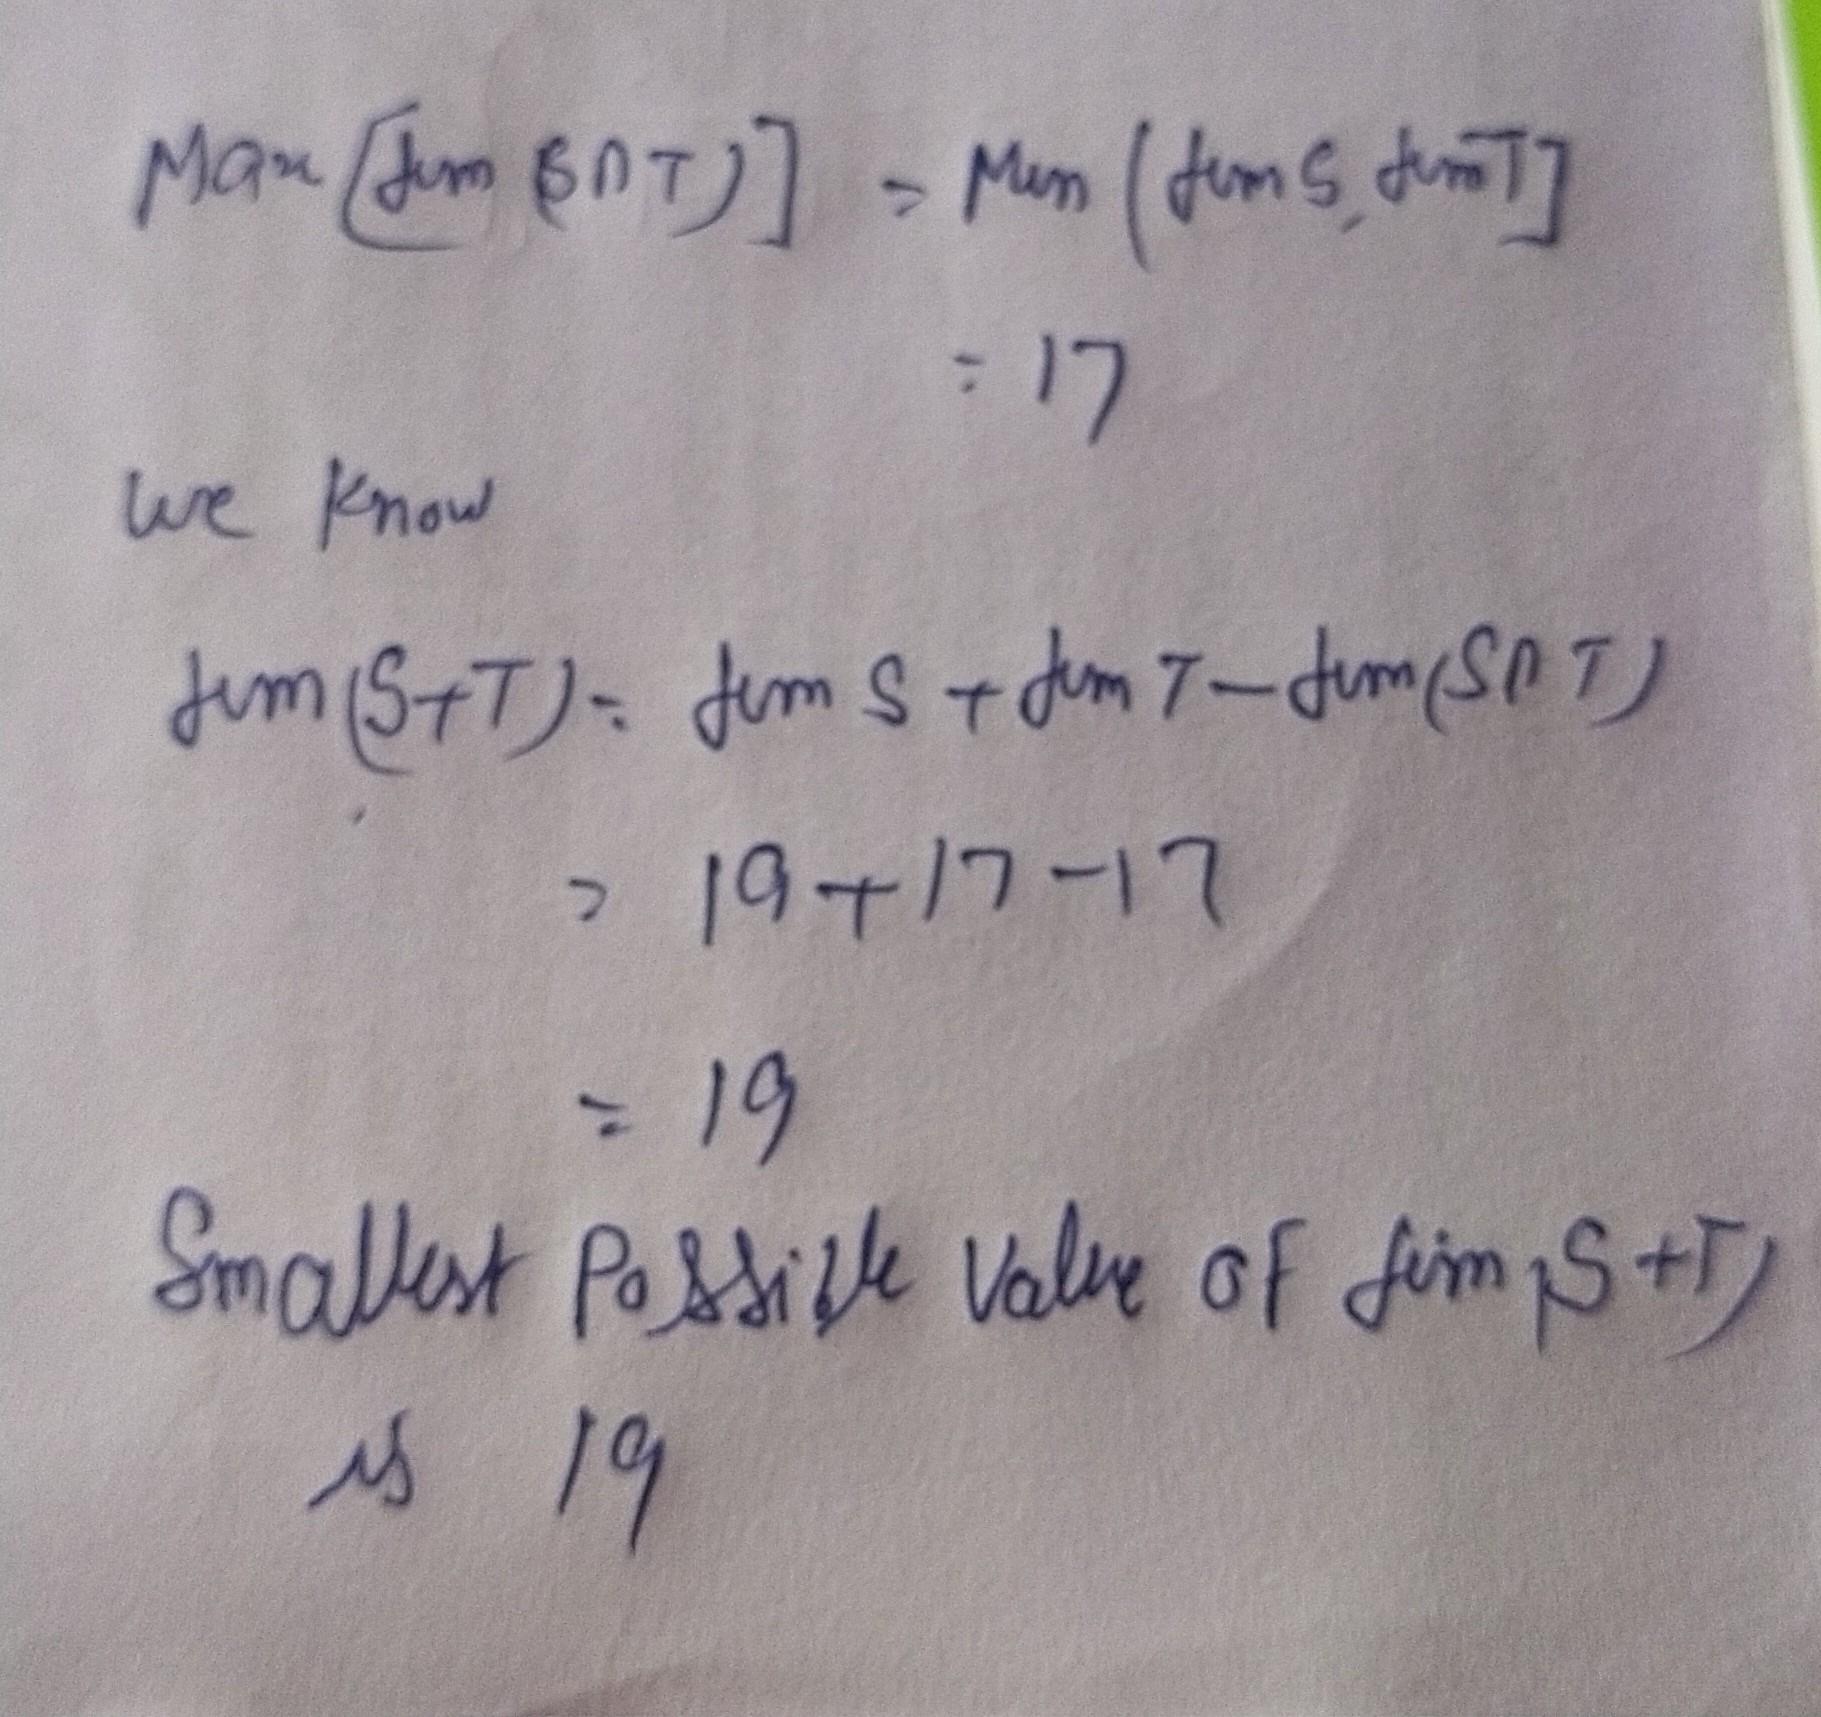 Max [dim (S∩T)] = Min (dim S, dim T]
= 17
we know
dim (S+T) = dim S + dim T - dim (S∩T)
= 19+17-17
= 19
Smallest Possible Value of dim (S+T)
is 19